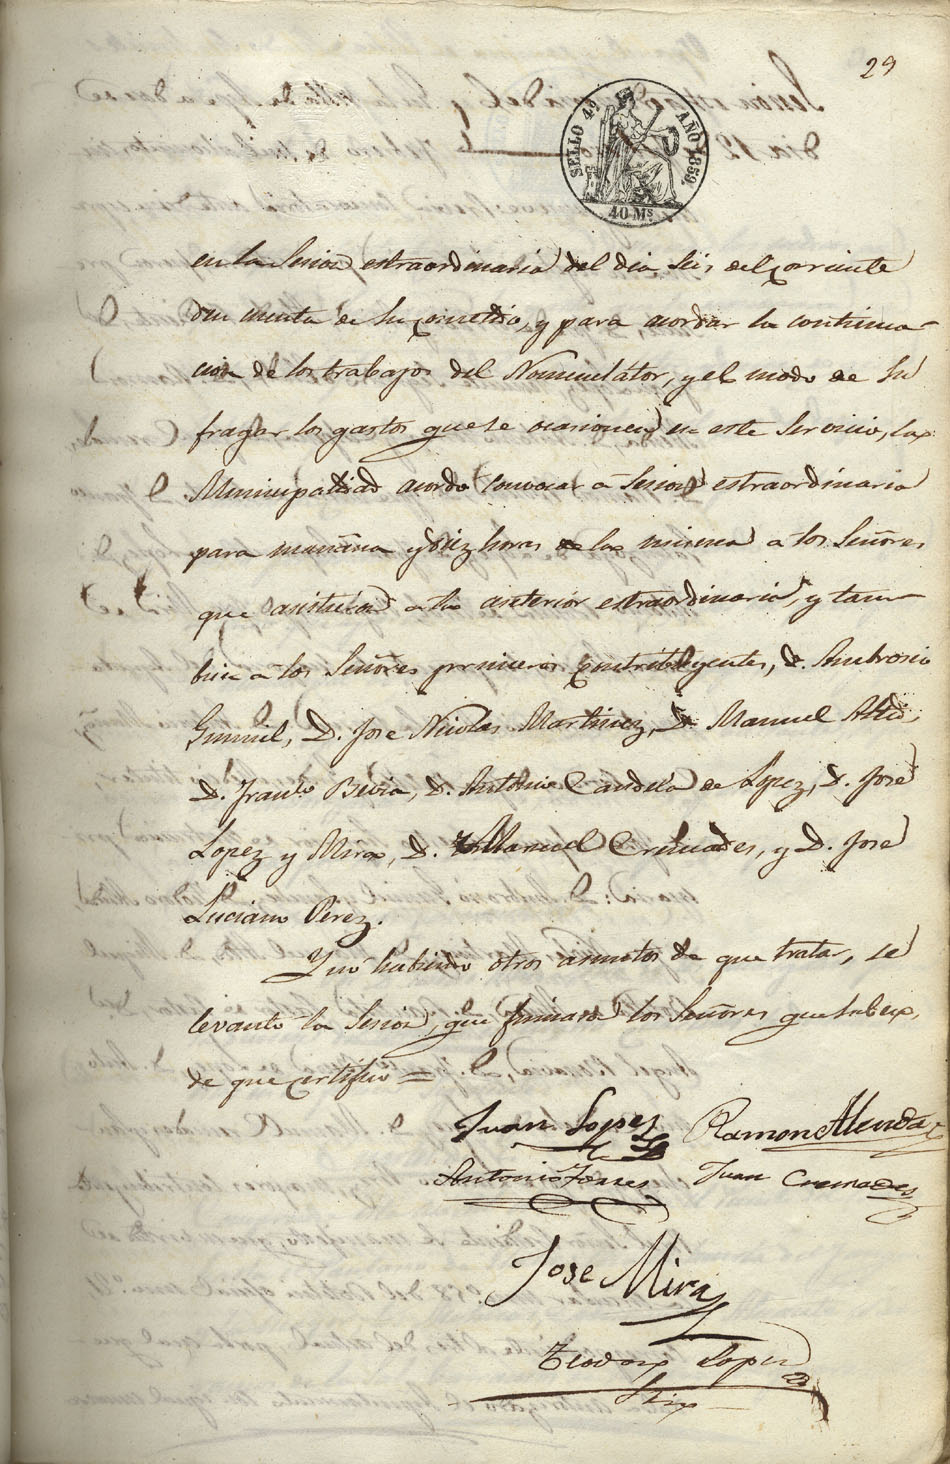 29
SELLO 4º AÑO 1859.
40 Ms
en la Sesion estraordinaria del dia seis del corriente
den cuenta de su cometido, y para acordar la continua-
cion de los trabajos del Nomenclator, y el modo de su
fragar los gastos que se ocasionen en este servicio, la
Municipalidad acordó convocar a Sesion estraordinaria
para mañana y diez horas de la misma a los Señores
que asistieron a la anterior estraordinaria, y tam-
bien a los Señores primeros Contribuyentes, D. Ambrosio
Gumiel, D. Jose Nicolas Martinez, D. Manuel Alted,
D. Franco. Bevia, D. Antonio Candela de Lopez, D. José
Lopez y Mira, D. Manuel Cremades, y D. José
Luciano Perez.
Y no habiendo otros asuntos de que tratar, se
levantó la Sesion, que firmaron los Señores que saben,
de que certifico =
Juan Lopez Ramon Alenda
Antonio Torres Juan Cremades
Jose Mira
Teodoro Lopez